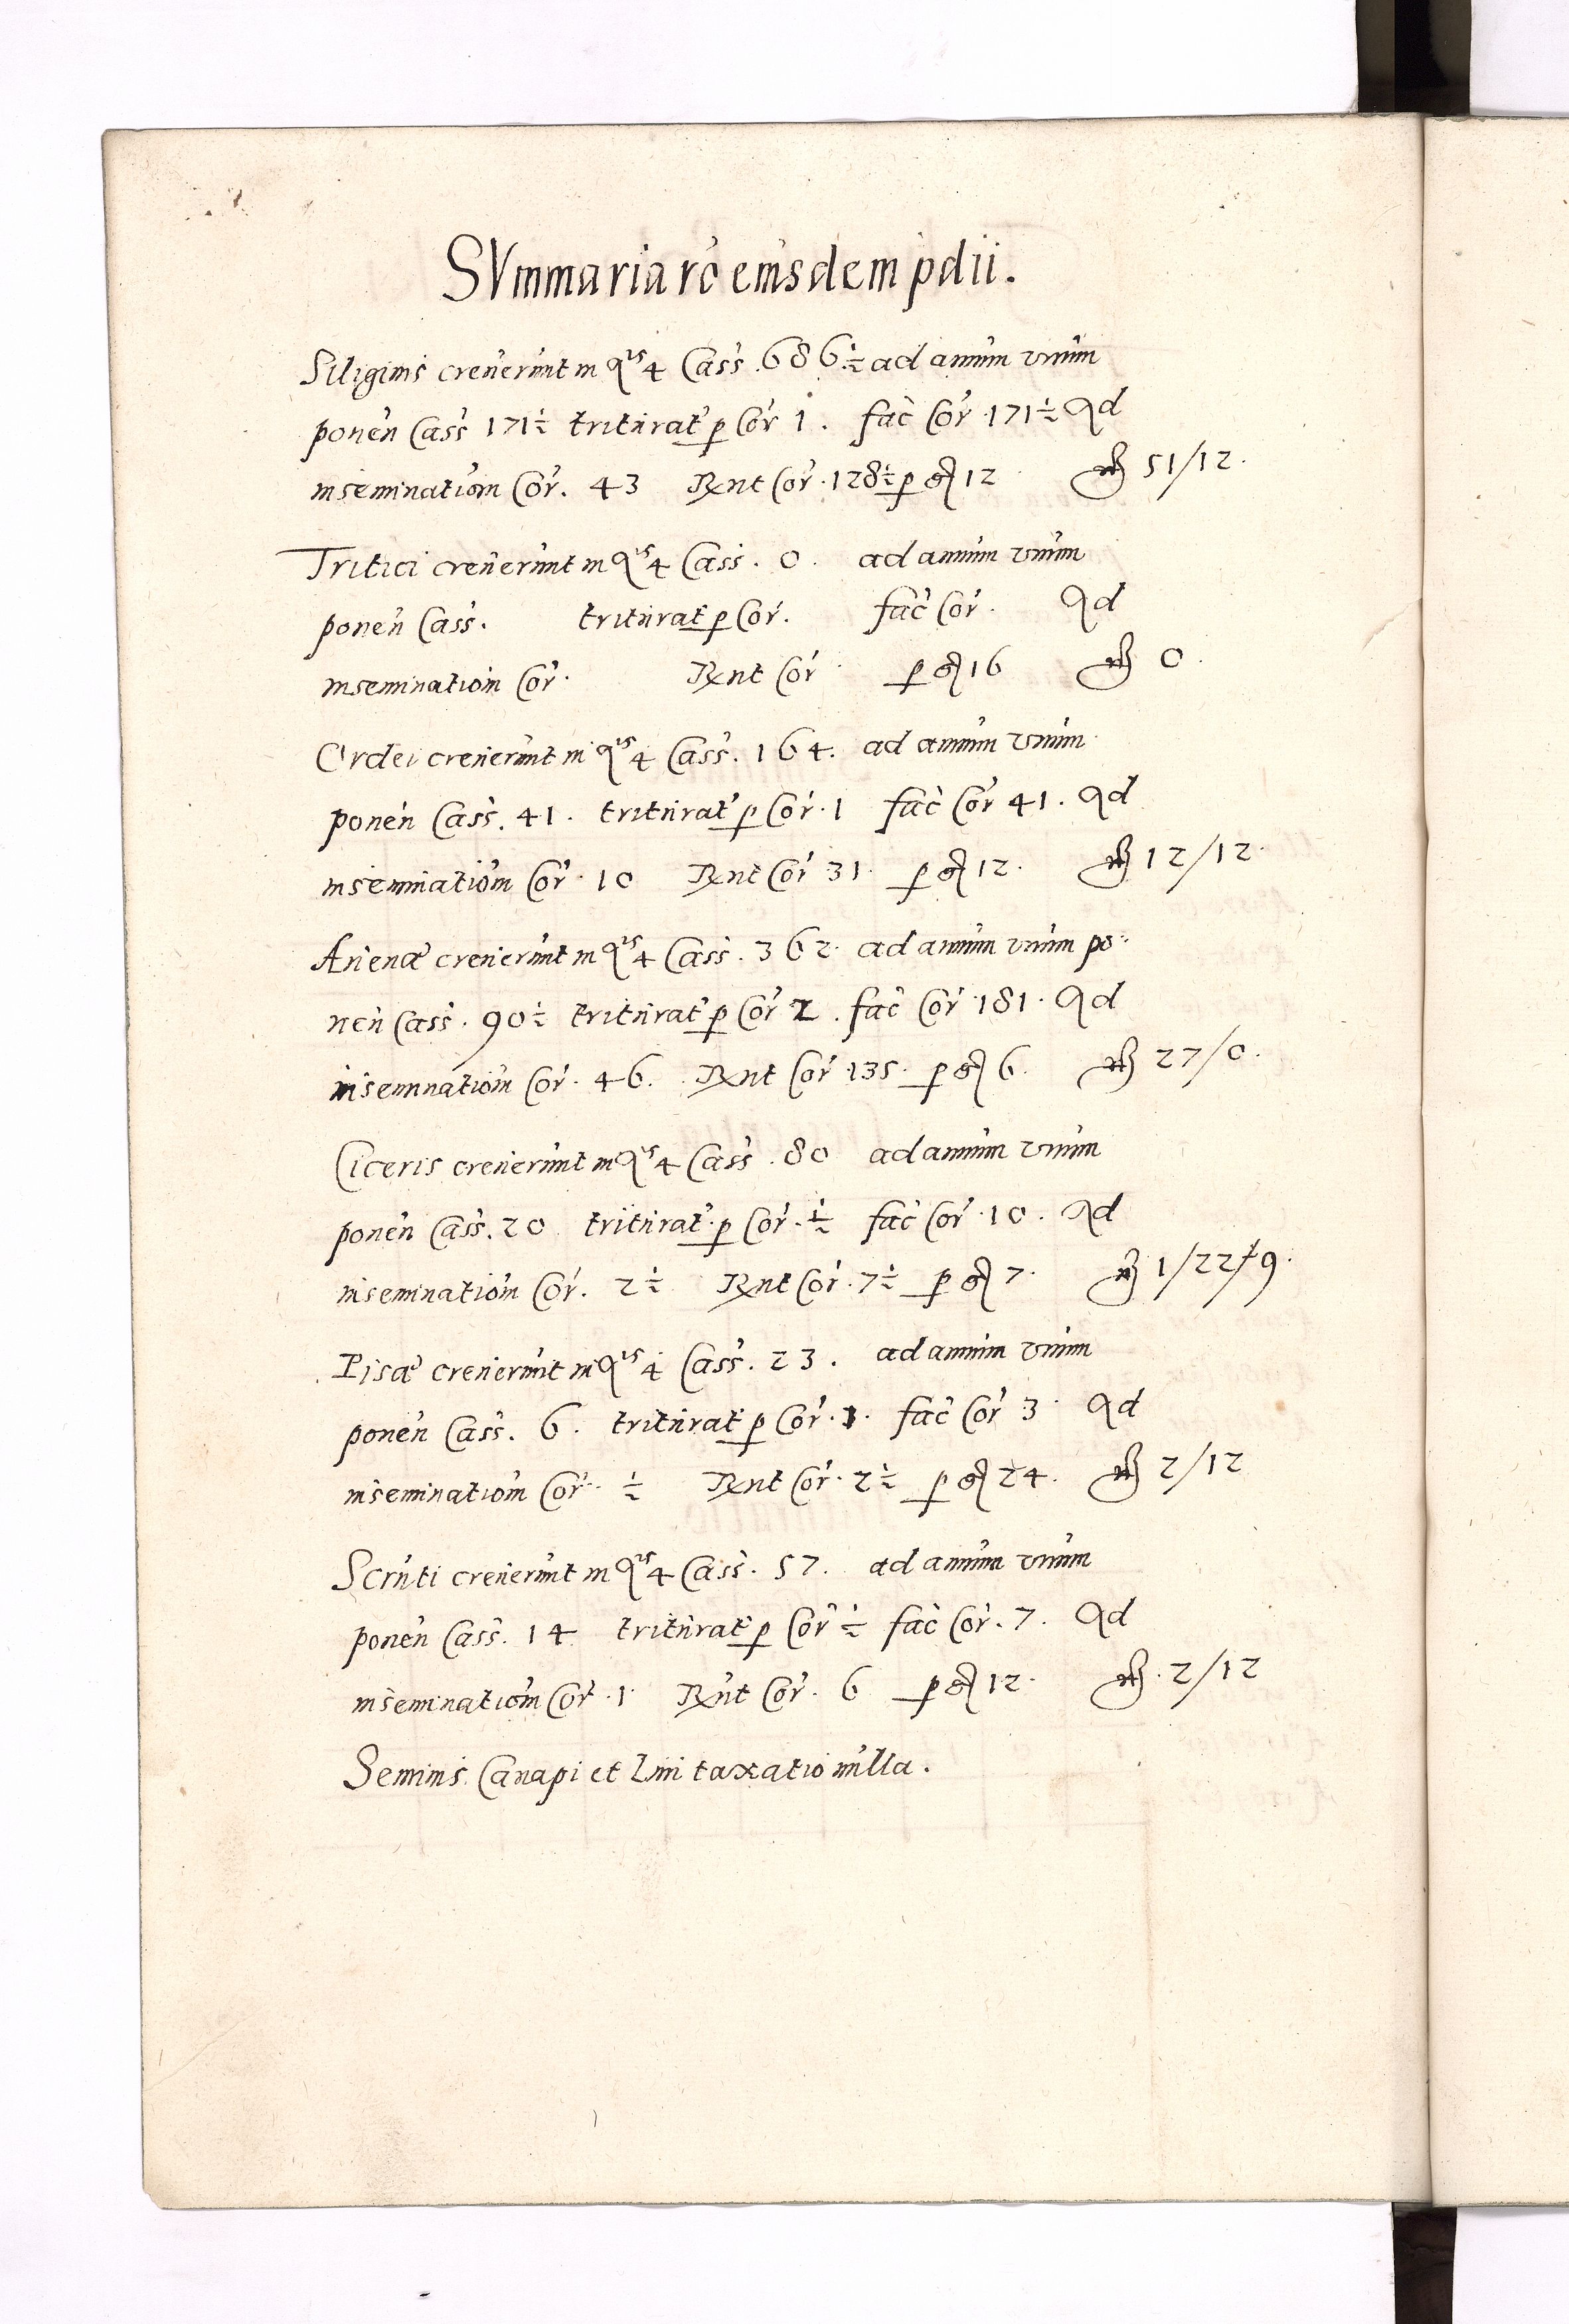 SVmmaria rõ eiusdem pdii.
Siliginis creuerunt in qis 4 Cass. 686½ ad annum vnum
ponen Cass 171½ triturat p Cor 1. fac Cor 171½ Qd
inseminatiom Cor. 43 Rnt Cor. 128½ p gr 12 mr 51/12.
Tritici creuerunt in qis 4 Cass. 0. ad annum vnum
ponen Cass. triturat p Cor. fac Cor. Qd
inseminatiom Cor. Rnt Cor p gr 16 mr 0.
Ordei creuerunt in qis 4 Cass. 164. ad annum vnum
ponen Cass. 41. triturat p Cor. 1 fac Cor 41. Qd
inseminatiom Cor. 10 Rnt Cor 31. p gr 12. mr 12/12.
Auenæ creuerunt in qis 4 Cass. 362. ad annum vnum po-
nen Cass. 90½ triturat p Cor 2. fac Cor 181. Qd
inseminatiom Cor. 46. Rnt Cor 135. p gr 6. mr 27/0.
Ciceris creuerunt in qis 4 Cass. 80 ad annum vnum
ponen Cass. 20 triturat p Cor. ½ fac Cor. 10. Qd
inseminatiom Cor. 2½ Rnt Cor. 7½ p gr 7. mr 1/22/9.
Pisæ creuerunt in qis 4 Cass. 23. ad annum vnum
ponen Cass. 6. triturat p Cor. fac Cor 3. Qd
inseminatiom Cor. ½ Rnt Cor. 2½ p gr 24. mr 2/12
Scruti creuerunt in qis 4 Cass. 57. ad annum vnum
ponen Cass. 14 triturat p Cor ½ fac Cor. 7. Qd
inseminatiom Cor. 1. Rnt Cor. 6 p gr 12. mr. 2/12
Seminis Canapi et Lini taxatio nulla.